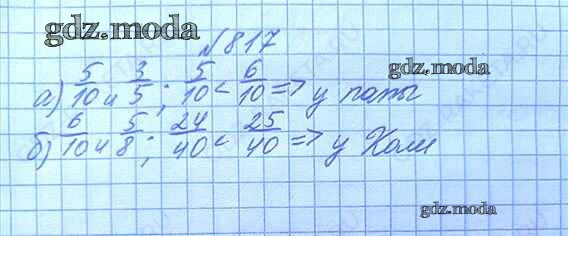 gdz.moda
№817
gdz.moda
а) 5/10 и 3/5; 5/10 < 6/10 => у папы
б) 6/10 и 5/8; 24/40 < 25/40 => у Коли
gdz.moda